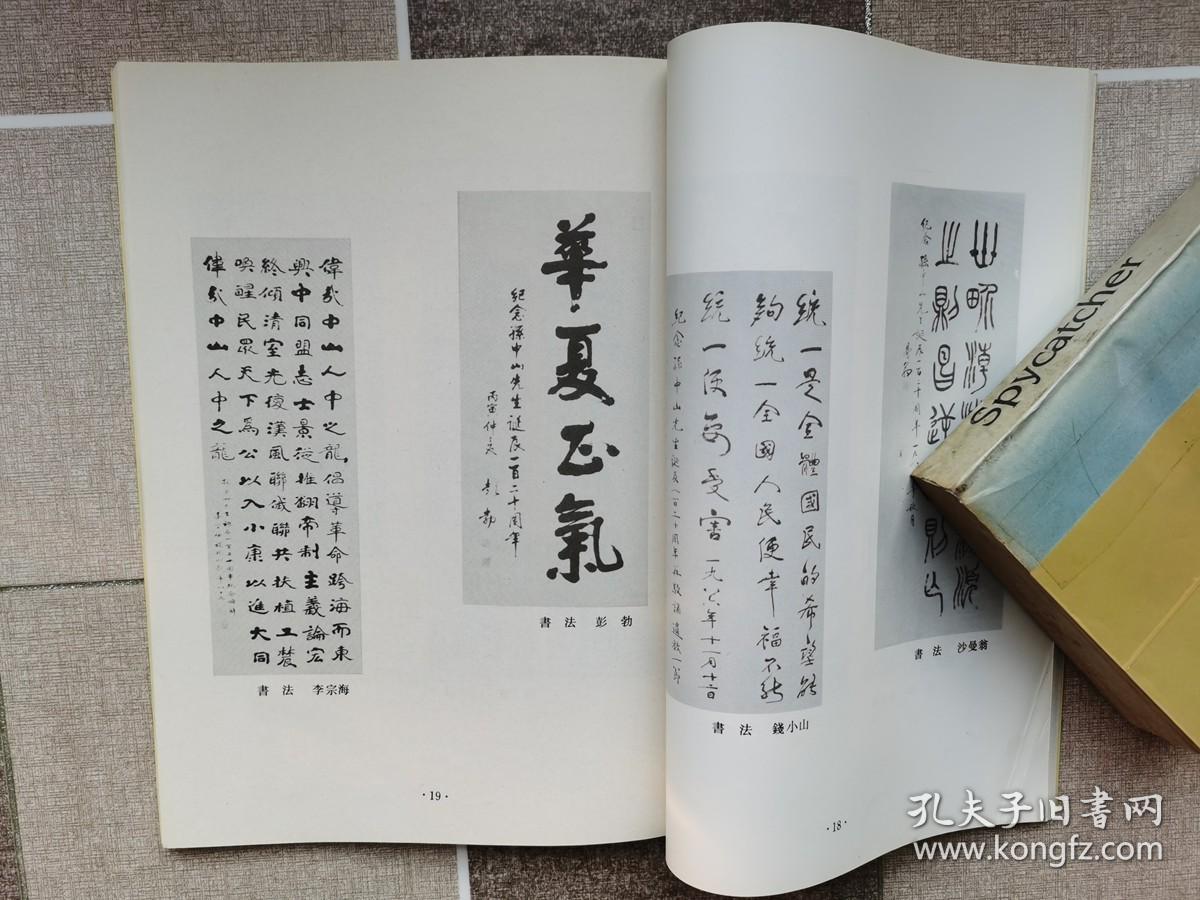 之則昌逆
則亡
紀念孫中山先生誕辰一百二十周年
書法 沙曼翁
統一是全體國民的希望能
夠統一全國人民便幸福不能
統一便要受害 一九八六年十一月十二
紀念孫中山先生誕辰一百二十周年
敬誦遺教一節
書法 錢小山
·18·
華夏正氣
紀念孫中山先生誕辰一百二十周年
丙寅仲冬 彭勃
書法 彭勃
偉哉中山人中之龍倡導革命跨海而東
興中同盟志士景從推翻帝制主義論宏
終傾清室光復漢風聯俄聯共扶植工農
喚醒民眾天下為公以入小康以進大同
偉哉中山人中之龍
書法 李宗海
·19·
Spycatcher
孔夫子旧书网
www.kongfz.com